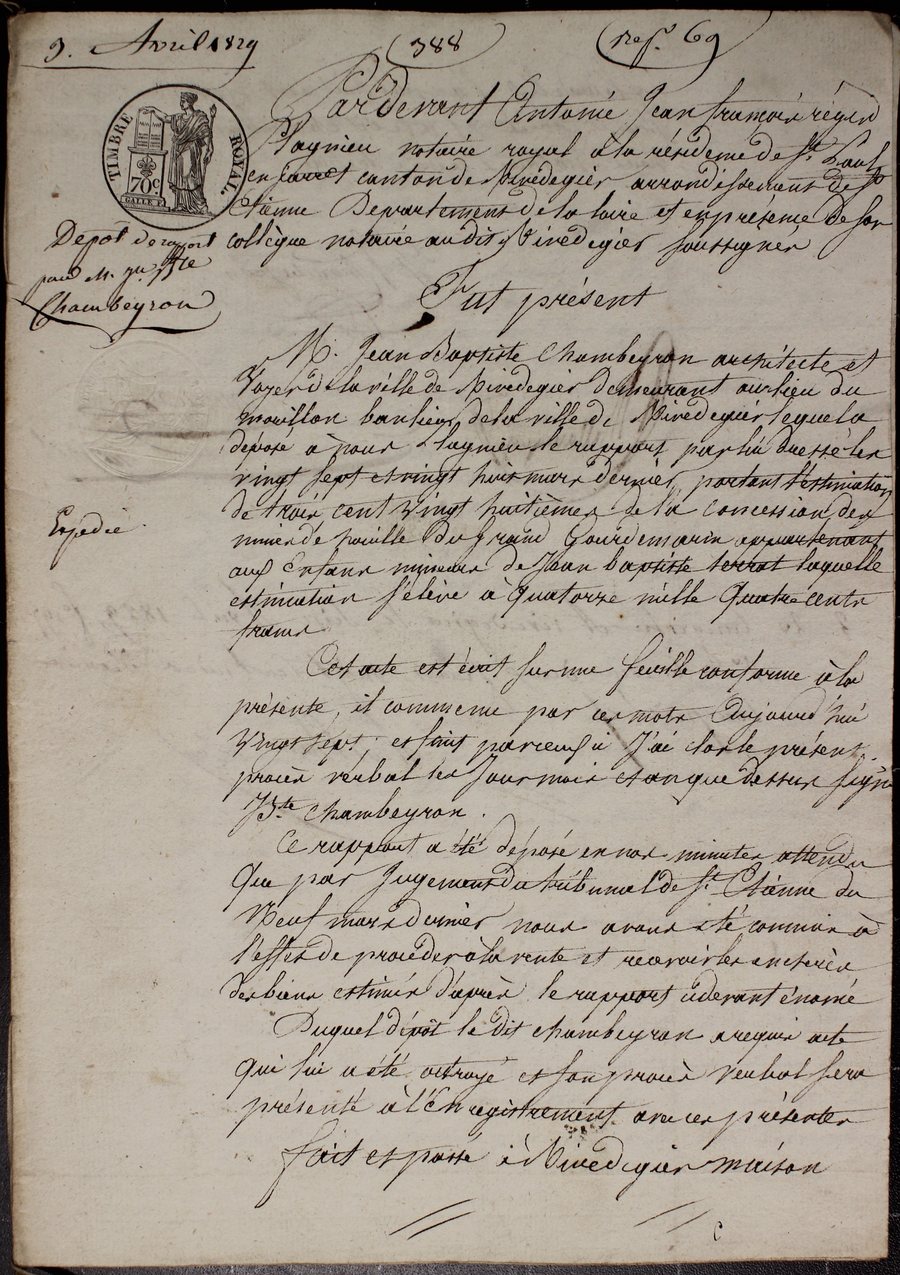 3. Avril 1829
388
Rep. 69
TIMBRE ROYAL.
70c.
Pardevant Antoine Jean françois régis
Plagnieu notaire royal à la résidence de St. Paul
en Jarret canton de Rivedegier arrondissement de St
Etienne Departement de la loire et en présence de son
collègue notaire audit Rivedegier soussignés
Dépot de raport
pour M. Jn. Bte
Chambeyron
Fut présent
M. Jean Baptiste Chambeyron architecte et
Voyer de la ville de Rivedegier demeurant au lieu du
mouillon banlieue de la ville de Rivedegier lequel a
déposé à nous Plagnieu le rapport par lui dressé les
vingt sept et vingt huit mars dernier, portant l'estimation
de trois cent vingt huitièmes de la concession des
mines de houille du grand Gourdemarin appartenant
aux Enfans mineurs de Jean baptiste terrat laquelle
estimation s'élève à quatorze mille quatre cents
francs
Expédié
Cet acte est écrit sur une feuille conforme à la
présente, il commence par ces mots Aujourd'hui
Vingt sept, et finit par ceux ci J'ai clos le présent
procès verbal les Jour mois et an que dessus signé
J. Bte Chambeyron.
Ce rapport a été déposé en nos minutes attendu
que par Jugement du tribunal de St. Etienne du
Neuf mars dernier nous avons été commis à
l'effet de procéder à la vente et recevoir les enchères
des biens estimés d'après le rapport cidevant énomé
Duquel dépôt le dit Chambeyron a requis acte
qui lui a été octroyé et son procès verbal sera
présenté à l'Enregistrement avec ces présentes
fait et passé à Rivedegier maison